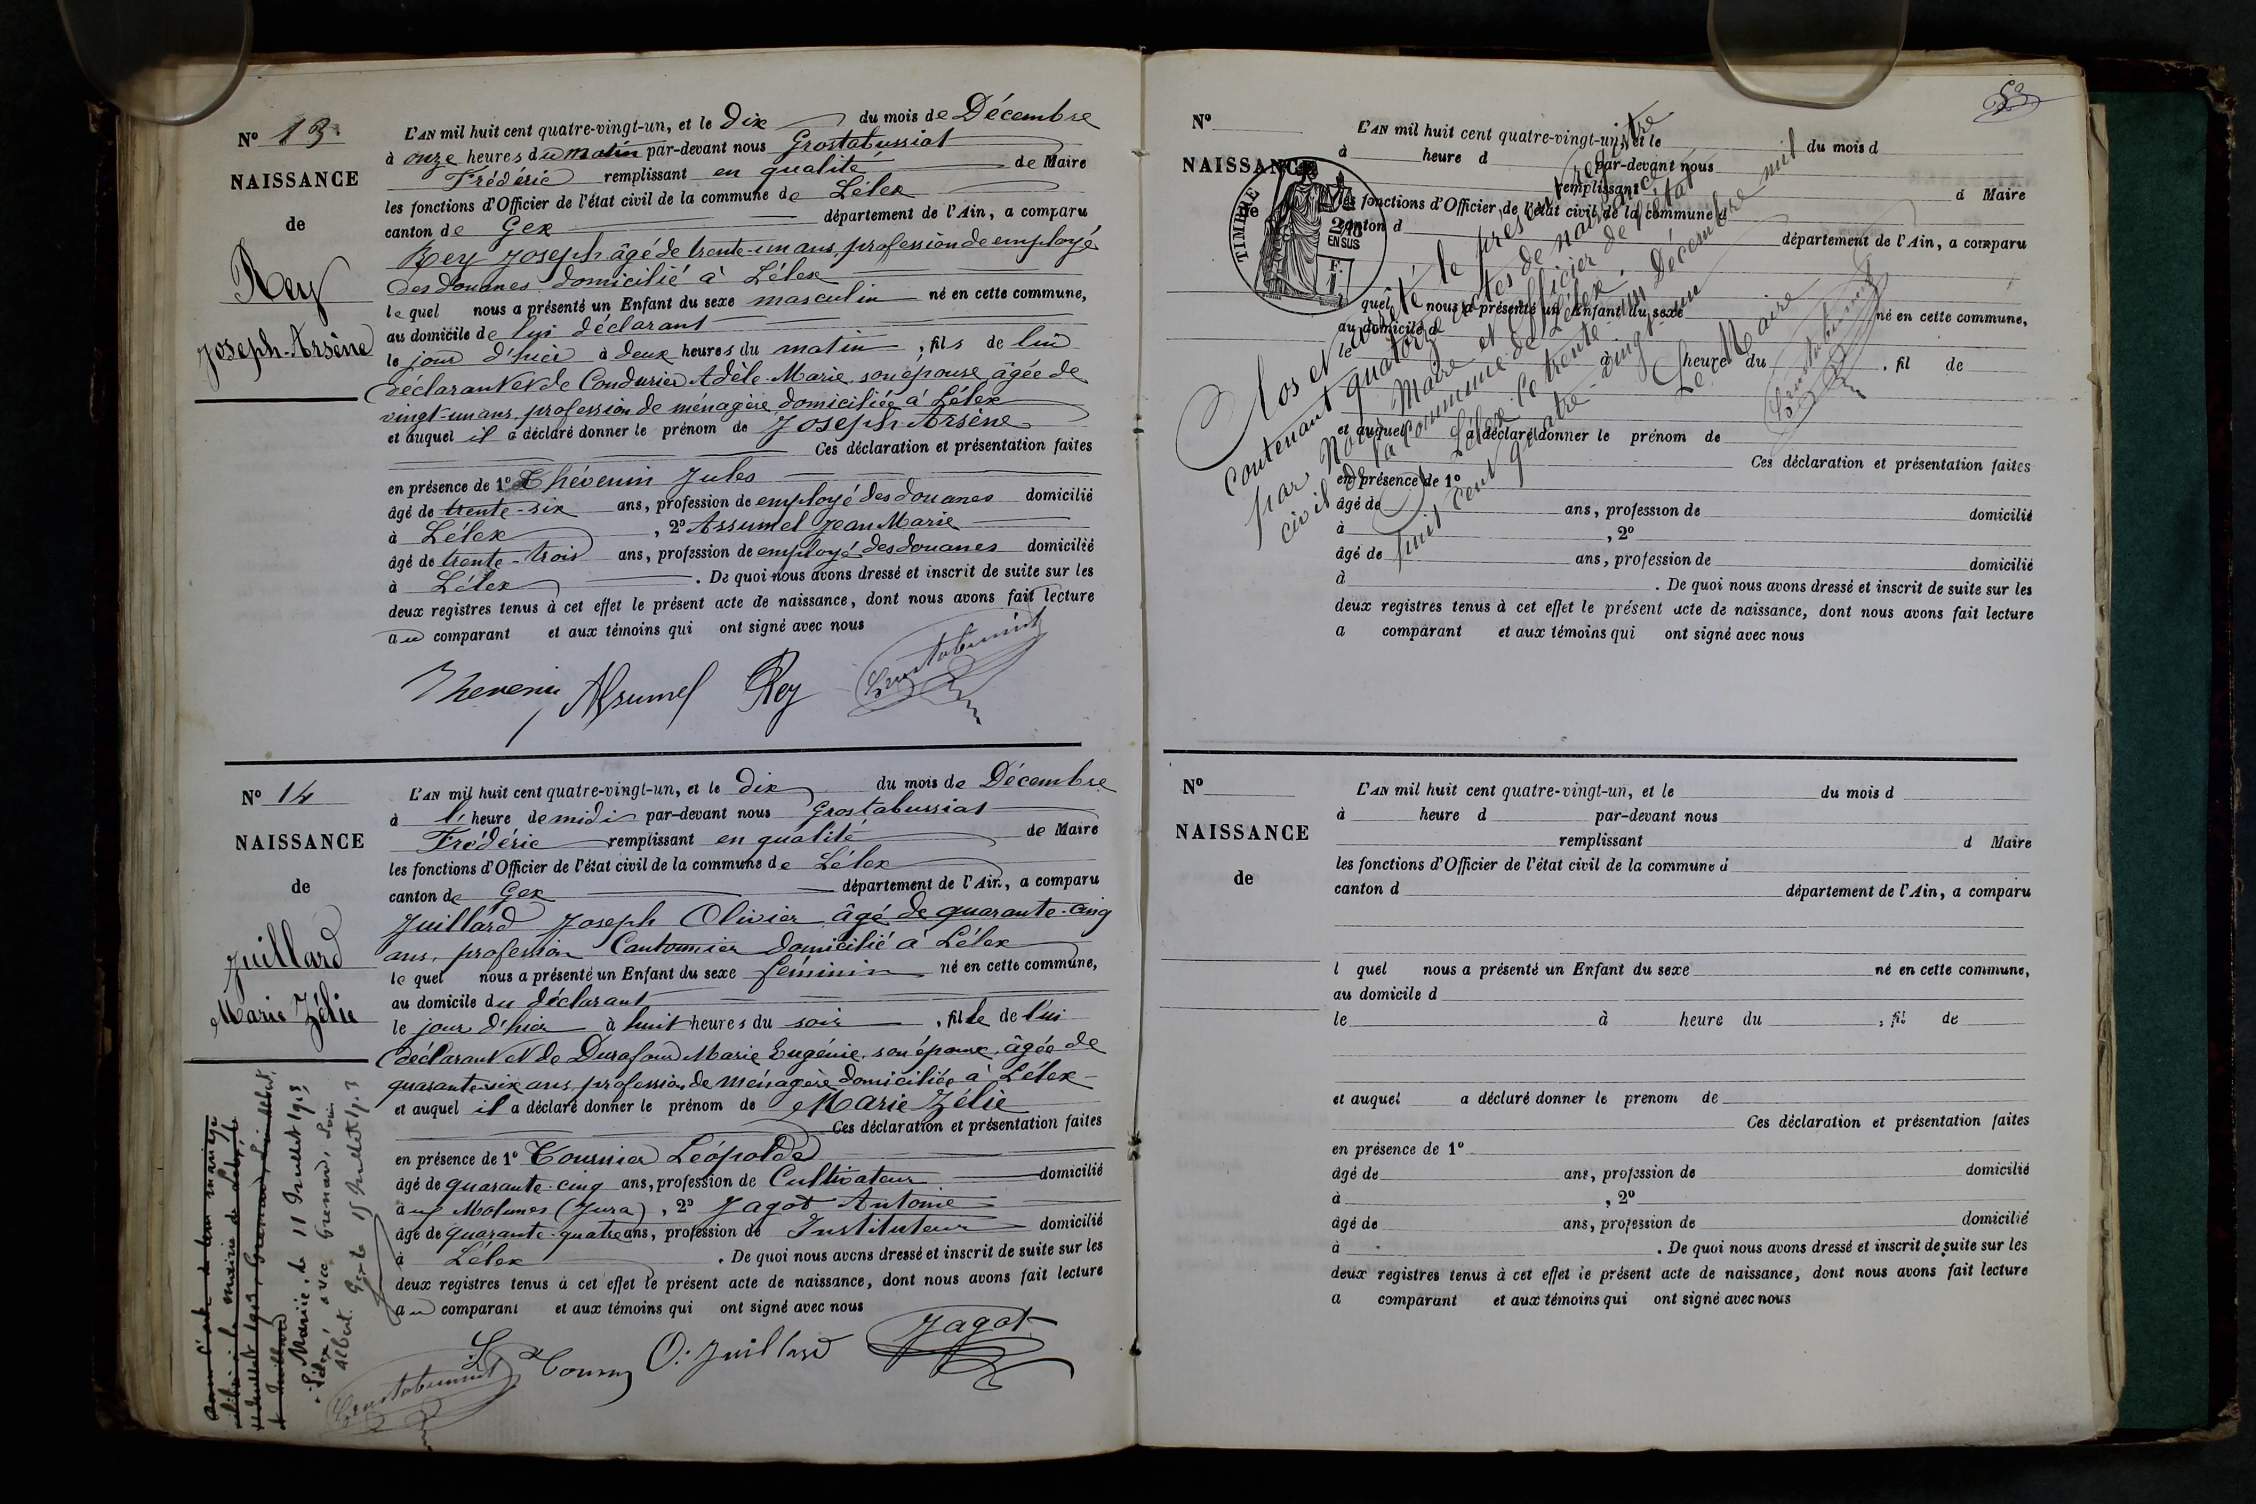 N° 13.
NAISSANCE
de
Rey
Joseph-Arsène
L'AN mil huit cent quatre-vingt-un, et le Dix du mois de Décembre
à onze heures du matin par-devant nous Grostabussiat
Frédéric remplissant en qualité de Maire
les fonctions d'Officier de l'état civil de la commune de Lélex
canton de Gex département de l'Ain, a comparu
Rey Joseph âgé de trente-un ans, profession de employé
des douanes, domicilié à Lélex
le quel nous a présenté un Enfant du sexe masculin né en cette commune,
au domicile de lui déclarant
le jour d'hier à deux heures du matin, fils de lui
déclarant et de Condurier Adèle-Marie, son épouse âgée de
vingt-un ans, profession de ménagère domiciliée à Lélex
et auquel il a déclaré donner le prénom de Joseph-Arsène
Ces déclaration et présentation faites
en présence de 1° Thévenin Jules
âgé de trente-six ans, profession de employé des douanes domicilié
à Lélex, 2° Assumel Jean Marie
âgé de trente-trois ans, profession de employé des douanes domicilié
à Lélex. De quoi nous avons dressé et inscrit de suite sur les
deux registres tenus à cet effet le présent acte de naissance, dont nous avons fait lecture
au comparant et aux témoins qui ont signé avec nous
Thevenin Assumel Rey Grostabussiat
N° 14
NAISSANCE
de
Juillard
Marie Zélie
L'AN mil huit cent quatre-vingt-un, et le dix du mois de Décembre
à l' heure de midi par-devant nous Grostabussiat
Frédéric remplissant en qualité de Maire
les fonctions d'Officier de l'état civil de la commune de Lélex
canton de Gex département de l'Ain, a comparu
Juillard Joseph Olivier âgé de quarante-cinq
ans, profession Cantonnier domicilié à Lélex
le quel nous a présenté un Enfant du sexe féminin né en cette commune,
au domicile du déclarant
le jour d'hier à huit heures du soir, fille de lui
déclarant et de Durafour Marie Eugénie, son épouse, âgée de
quarante-six ans, profession de ménagère domiciliée à Lélex
et auquel il a déclaré donner le prénom de Marie Zélie
Ces déclaration et présentation faites
en présence de 1° Tournier Léopold
âgé de quarante-cinq ans, profession de Cultivateur domicilié
aux Molunes (Jura), 2° Jagot Antoine
âgé de quarante-quatre ans, profession de Instituteur domicilié
à Lélex. De quoi nous avons dressé et inscrit de suite sur les
deux registres tenus à cet effet le présent acte de naissance, dont nous avons fait lecture
au comparant et aux témoins qui ont signé avec nous
L Tourny O. Juillard Jagot
Grostabussiat
Mariée, le 11 Juillet 1903
Lélex avec Grenard, Louis
Albert. Gex le 15 Juillet 1903
53
N°
NAISSANCE
de
TIMBRE
2/10
EN SUS
L'AN mil huit cent quatre-vingt-un, et le du mois d
à heure d par-devant nous
remplissant d Maire
les fonctions d'Officier de l'état civil de la commune d
canton d département de l'Ain, a comparu
l quel nous a présenté un Enfant du sexe né en cette commune,
au domicile d
le à heure du , fil de
et auquel a déclaré donner le prénom de
Ces déclaration et présentation faites
en présence de 1°
âgé de ans, profession de domicilié
à , 2°
âgé de ans, profession de domicilié
à . De quoi nous avons dressé et inscrit de suite sur les
deux registres tenus à cet effet le présent acte de naissance, dont nous avons fait lecture
a comparant et aux témoins qui ont signé avec nous
Clos et arrêté le présent registre
contenant quatorze actes de naissance
par Nous Maire et officier de l'état
civil de la commune de Lélex
Lélex le trente-un Décembre mil
huit cent quatre-vingt-un
Le Maire
Grostabussiat
N°
NAISSANCE
de
L'AN mil huit cent quatre-vingt-un, et le du mois d
à heure d par-devant nous
remplissant d Maire
les fonctions d'Officier de l'état civil de la commune d
canton d département de l'Ain, a comparu
l quel nous a présenté un Enfant du sexe né en cette commune,
au domicile d
le à heure du , fil de
et auquel a déclaré donner le prénom de
Ces déclaration et présentation faites
en présence de 1°
âgé de ans, profession de domicilié
à , 2°
âgé de ans, profession de domicilié
à . De quoi nous avons dressé et inscrit de suite sur les
deux registres tenus à cet effet le présent acte de naissance, dont nous avons fait lecture
a comparant et aux témoins qui ont signé avec nous